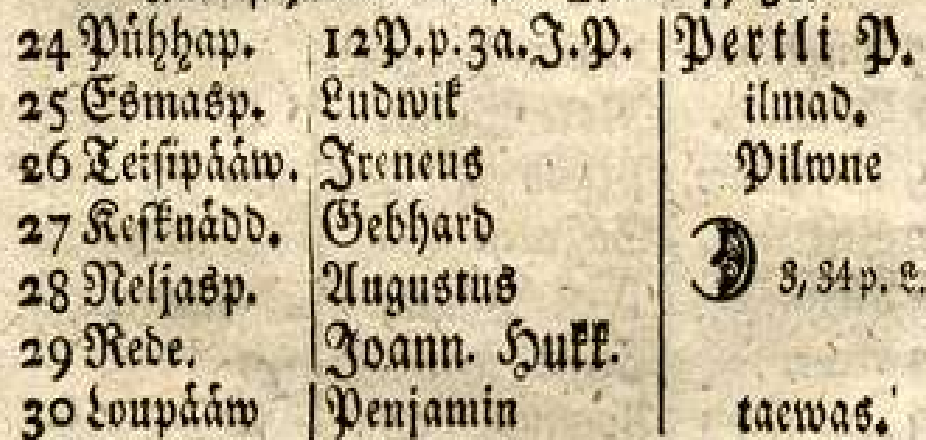 24 Pühhap. 12 P. p. 3a. J. P. Pertli P.
25 Esmasp. Ludwik ilmad.
26 Teisipääw. Ireneus Pilwne
27 Keſknädd. Gebhard
28 Neljasp. Augustus 8, 34 p. L.
29 Rede. Joann. Hukk.
30 Loupääw Penjamin taewas.